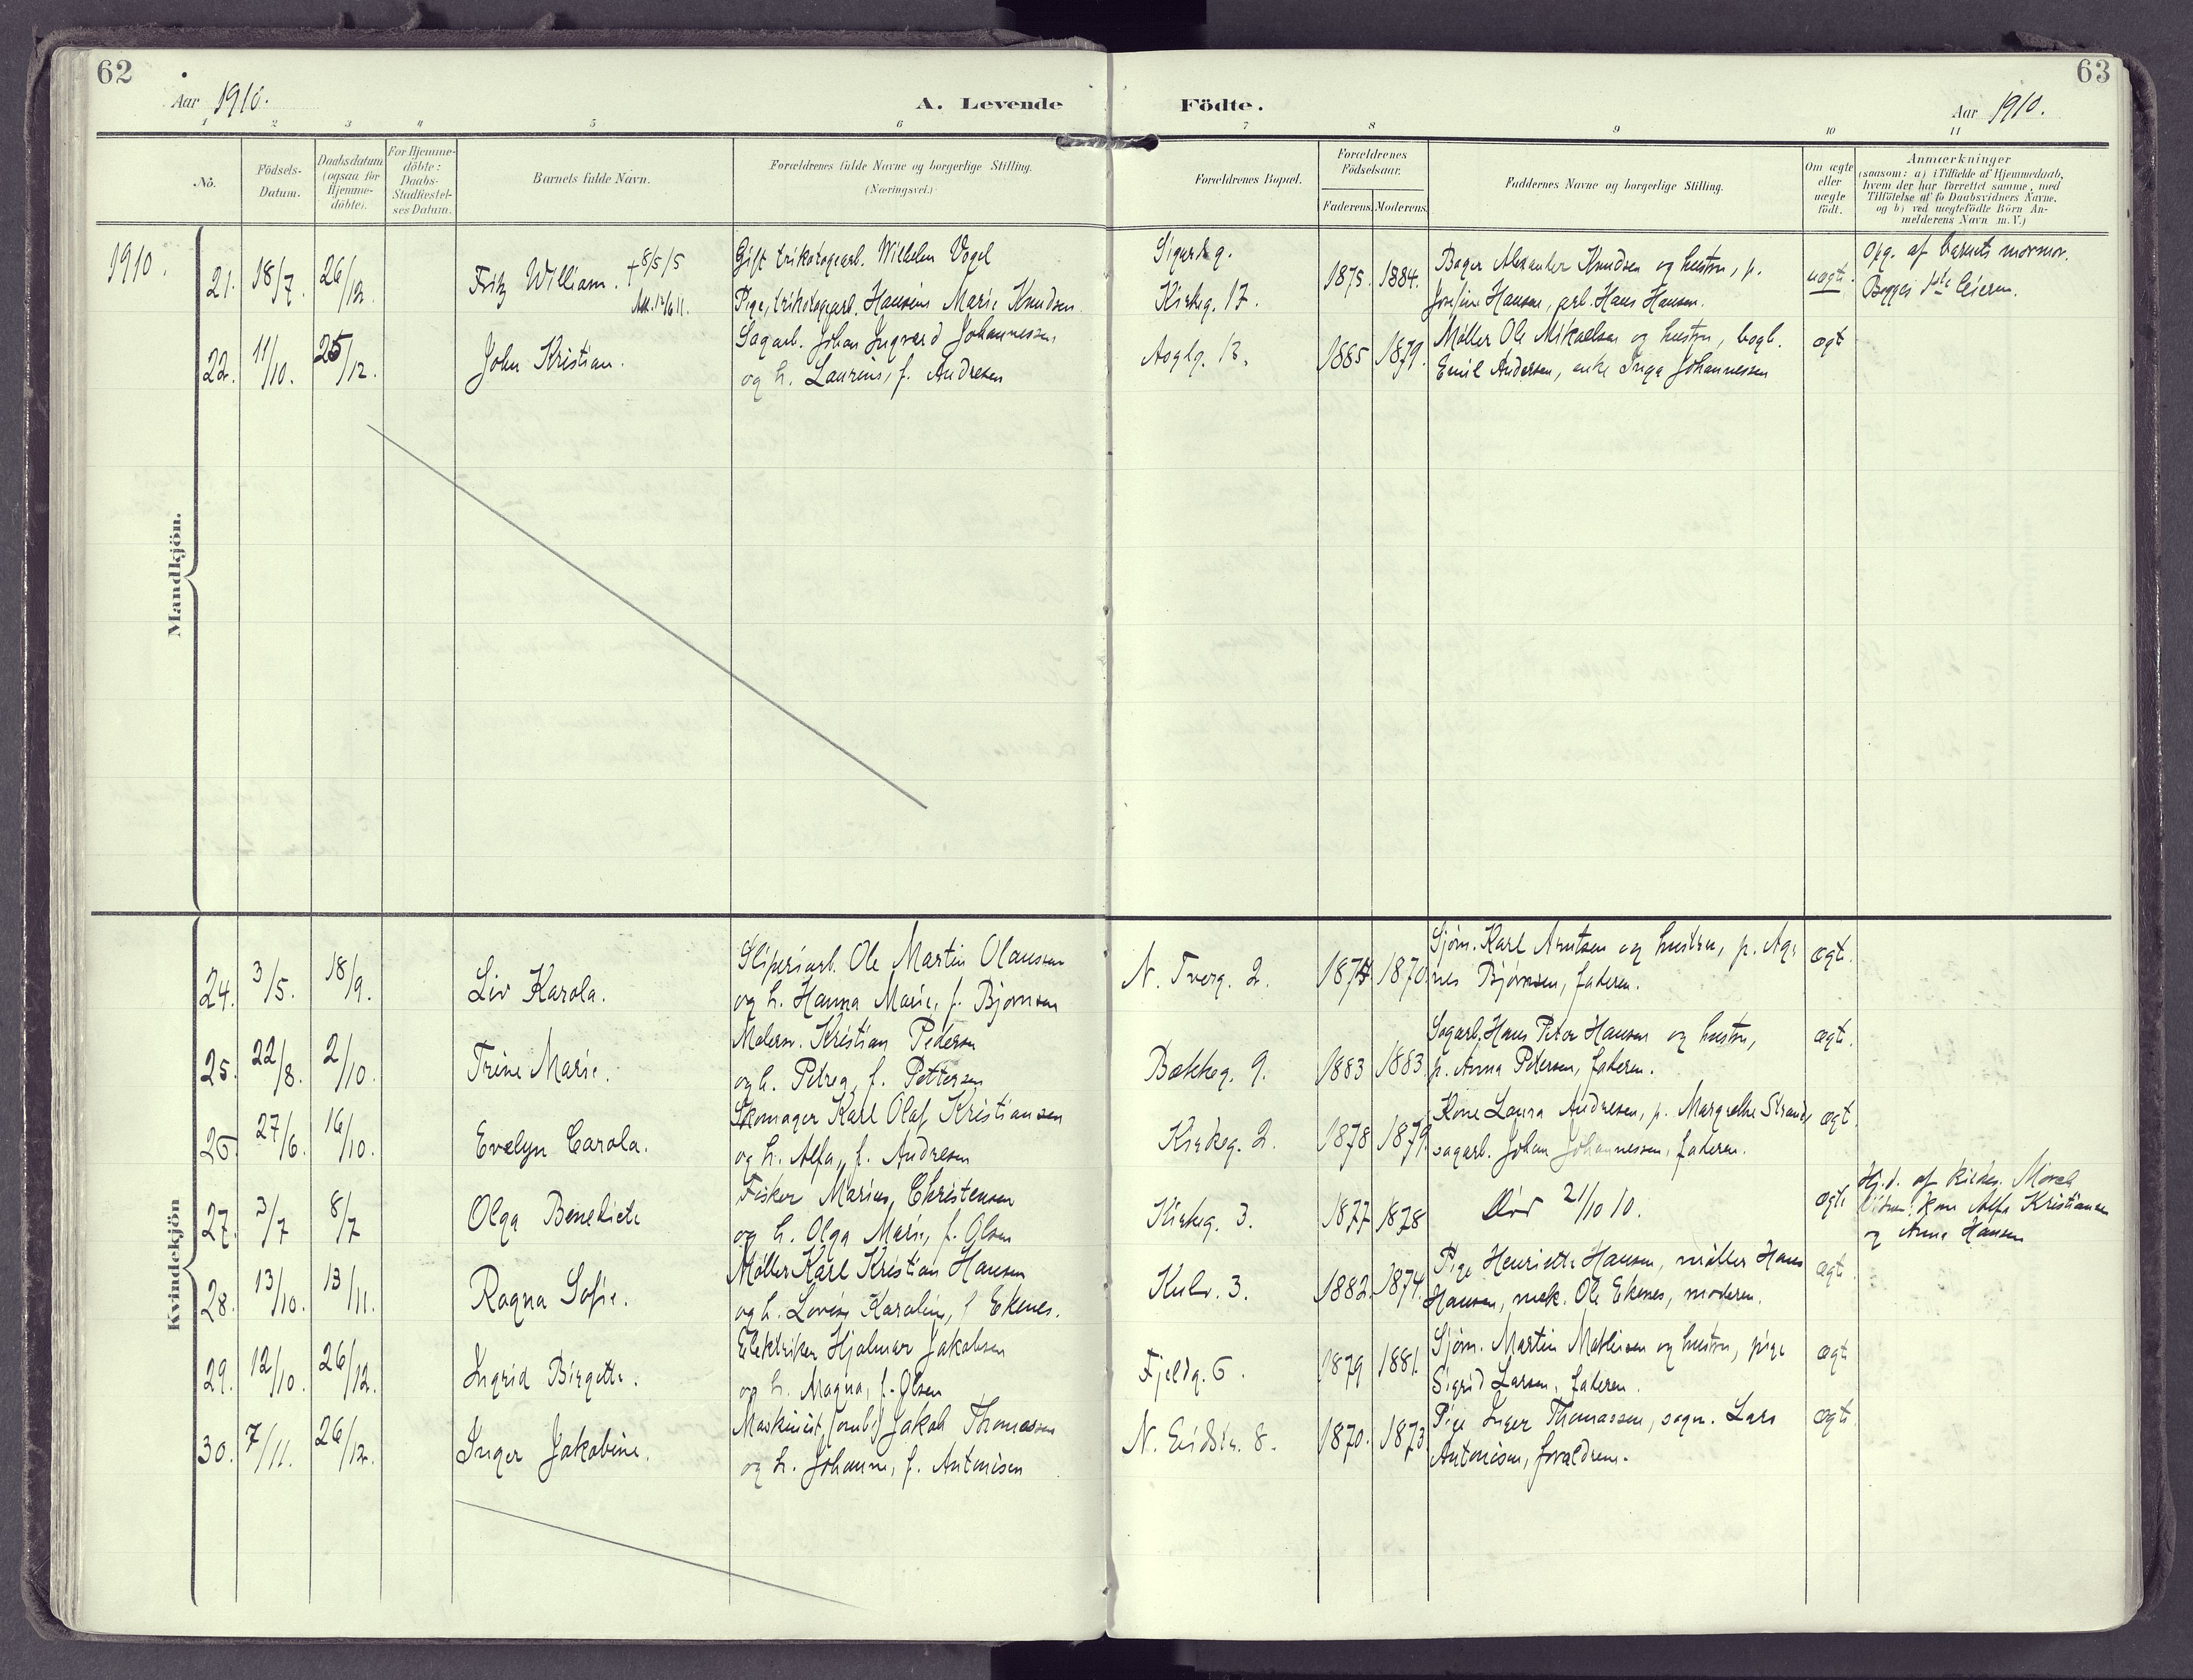 62
Aar 1910.
A. Levende
Födte.
Aar 1910.
63
1 2 3 4 5 6 7 8 9 10 11
No.
Födsels-
Datum.
Daabsdatum
(ogsaa for
Hjemme-
döbte).
For Hjemme-
döbte:
Daabs-
Stadfæstel-
ses Datum.
Barnets fulde Navn.
Forældrenes fulde Navne og borgerlige Stilling.
(Næringsvei.)
Forældrenes Bopæl.
Forældrenes
Födselsaar.
Faderens. Moderens.
Faddernes Navne og borgerlige Stilling.
Om ægte
eller
uægte
födt.
Anmærkninger
(saasom: a) i Tilfælde af Hjemmedaab,
hvem der har forrettet samme, med
Tilföielse af to Daabsvidners Navne,
og b) ved uægtefödte Börn An-
melderens Navn m. V.)
1910.
Mandkjön.
21. 18/7. 26/12. Fritz William. + 8/5/5
Gift trikotagearb. Wilhelm Vogel
Pige, trikotagearb. Hansine Marie Knudsen
Sigurdg.
Kirkeg. 17.
1875. 1884.
Bager Alexander Knudsen og hustru, p.
Josefine Hansen, arb. Hans Hansen.
uægte.
Opg. af barnets mormor.
Begges 1ste leierm.
22. 11/10. 25/12. John Kristian.
Sagarb. Johan Ingvard Johannessen
og h. Laurine, f. Andresen
Aaglg. 13.
1885 1879.
Møller Ole Mikaelsen og hustru, bogb.
Emil Andersen, enke Inga Johannessen
ægt
Kvindekjön
24. 3/5. 18/9. Liv Karola.
Sliperiarb. Ole Martin Olaussen
og h. Hanna Marie, f. Bjørnsen
N. Tverg. 2.
1870.
Sjøm. Karl Arntsen og hustru, p. Ag-
nes Bjørnsen, faderen.
ægt.
25. 22/8. 2/10. Trine Marie.
Malersv. Kristian Pedersen
og h. Petrea, f. Pettersen
Bakkeg. 9.
1883 1883.
Sagarb. Hans Peter Hansen og hustru,
p. Anna Petersen, faderen.
ægt.
26. 27/6. 16/10. Evelyn Carola.
Skomager Karl Olaf Kristiansen
og h. Alfa, f. Andresen
Kirkeg. 2.
1878 1879.
Kone Laura Andresen, p. Margrethe Strand,
sagarb. Johan Johannessen, faderen.
ægt.
27. 3/7 8/7 Olga Benedicte
Fisker Marius Christensen
og h. Olga Marie, f. Olsen
Kirkeg. 3.
1877 1878
Død 21/10 10.
ægte
Hj.d. af
kone Alfa Kristiansen
og Anna Hansen
28. 13/10. 13/11. Ragna Sofie.
Møller Karl Kristian Hansen
og h. Lovise Karoline, f Ekenes.
Kulv. 3.
1882. 1874.
Pige Henriette Hansen, møller Hans
Hansen, mek. Ole Ekenes, moderen.
ægte.
29. 12/10. 26/12. Ingrid Birgitte.
Elektriker Hjalmar Jakobsen
og h. Magna, f. Olsen
Fjeldg. 6.
1879 1881.
Sjøm. Martin Mathisen og hustru, pige
Sigrid Larsen, faderen.
ægt
30. 7/11. 26/12. Inger Jakobine.
Maskinist, (omb.) Jakob Thomassen
og h. Johanne, f. Antonisen
N. Eidstr. 8.
1870. 1873.
Pige Inger Thomassen, sagm. Lars
Antonisen, forældrene.
ægte.